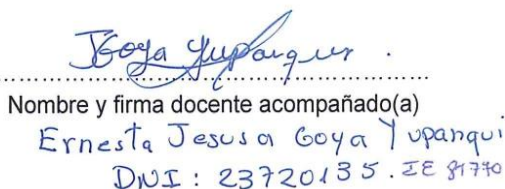 JGoya Yupanqui.
Nombre y firma docente acompañado(a)
Ernesta Jesusa Goya Yupanqui
DNI: 23720135. IE 81770